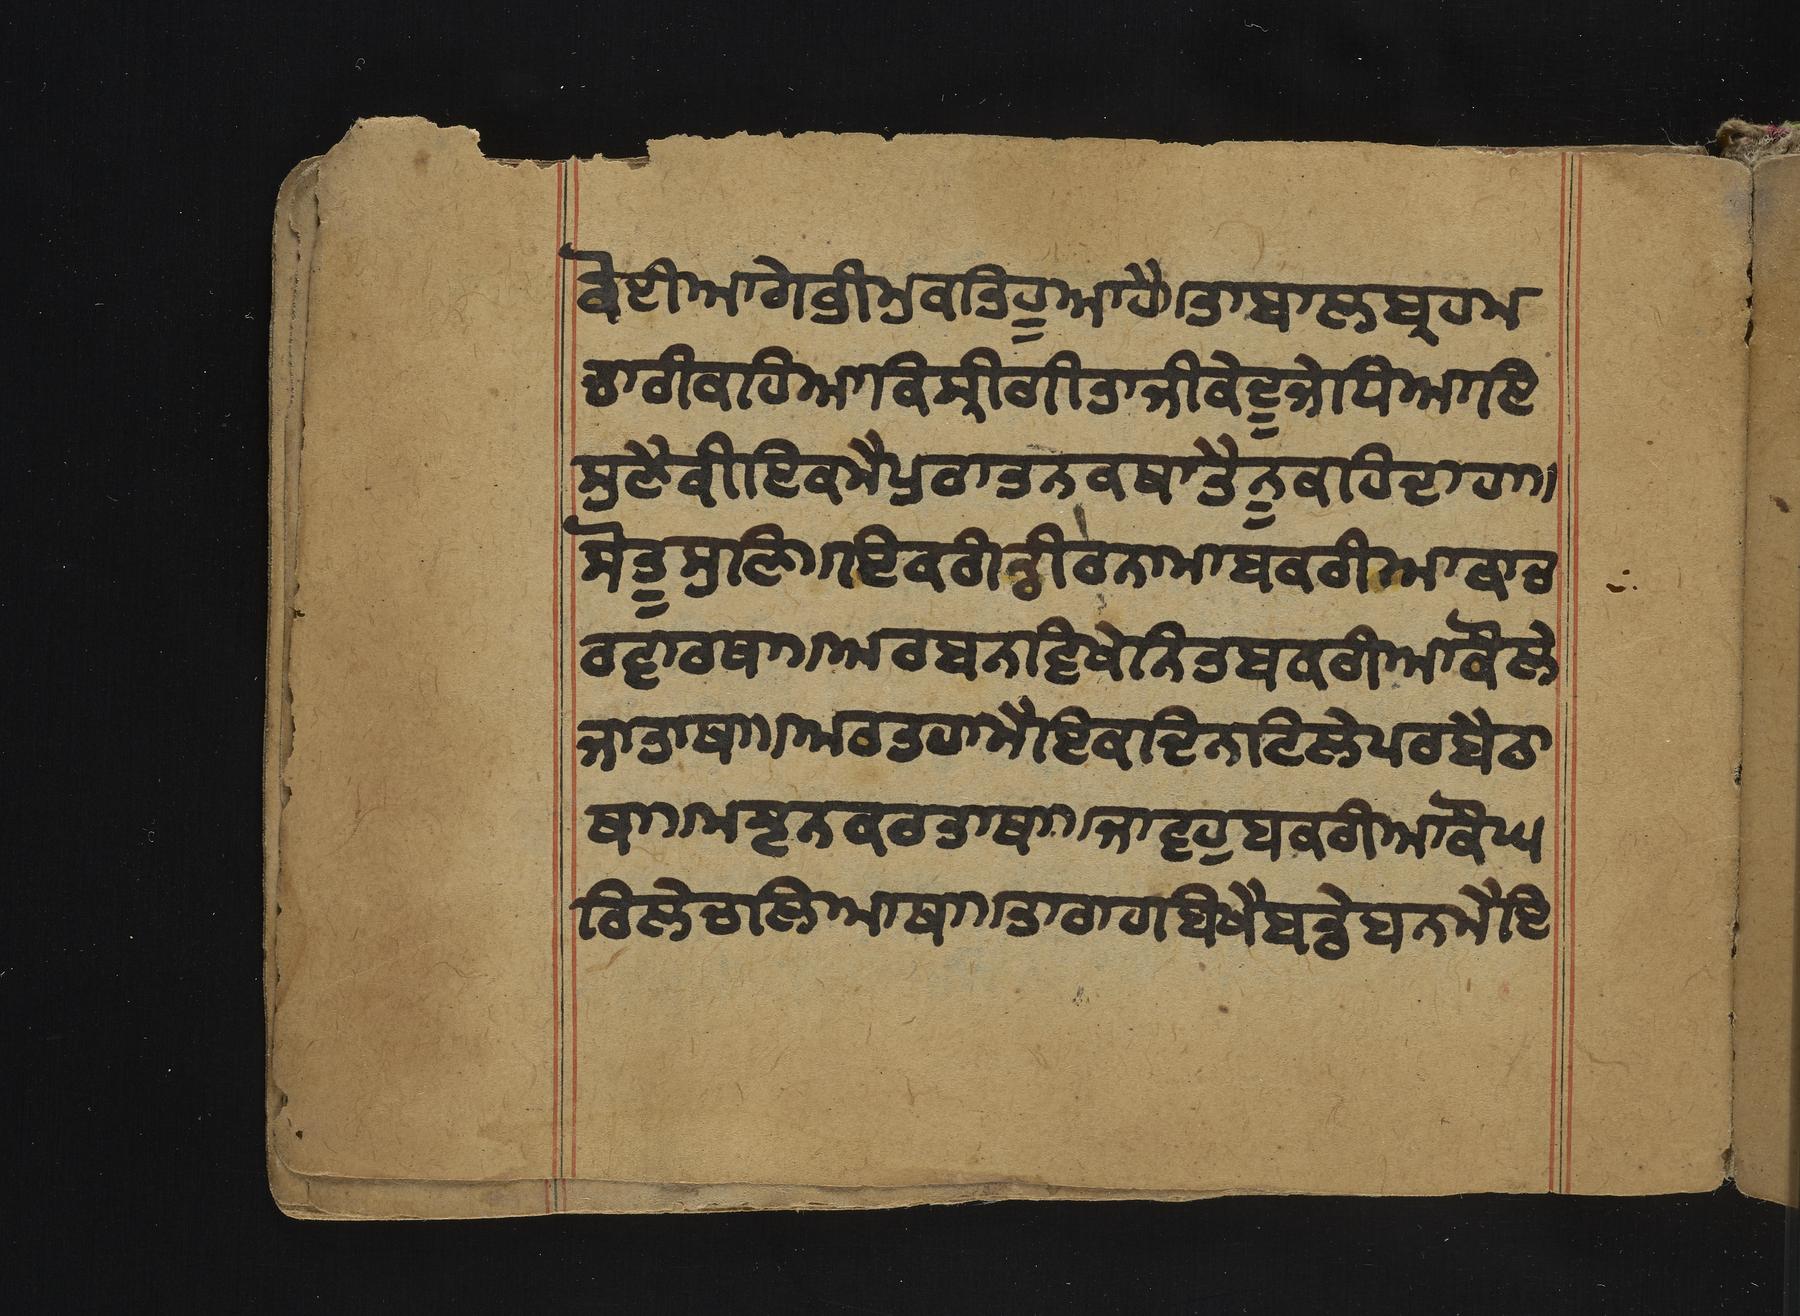 ਕੋਈਆਗੇਭੀਮੁਕਤਿਹੂਆਹੈ।ਤਾਬਾਲਬ੍ਰਹਮ
ਚਾਰੀਕਹਿਆਕਿਸ੍ਰੀਗੀਤਾਜੀਕੇਦੂਜੇਧਿਆਇ
ਸੁਣੈਕੀਇਕਮੈਪੁਰਾਤਨਕਥਾਤੈਨੂਕਹਿਦਾਹਾ।
ਸੋਤੂਸੁਣਿ॥ਇਕਰੀਤ੍ਰੀਰਨਾਮਾਬਕਰੀਆਕਾਚ
ਰਵਾਰਥਾ॥ਅਰਬਨਵਿਖੇਨਿਤਬਕਰੀਆਕੌਲੇ
ਜਾਤਾਥਾ॥ਅਰਤਹਾਮੈਇਕਦਿਨਟਿਲੇਪਰਬੈਠਾ
ਥਾ॥ਮਝਨਕਰਤਾਥਾ॥ਜਾਵਹੁਬਕਰੀਆਕੌਘ
ਰਿਲੇਚਲਿਆਥਾ॥ਤਾਰਾਹਬਿਖੈਬਡੇਬਨਮੈਇ